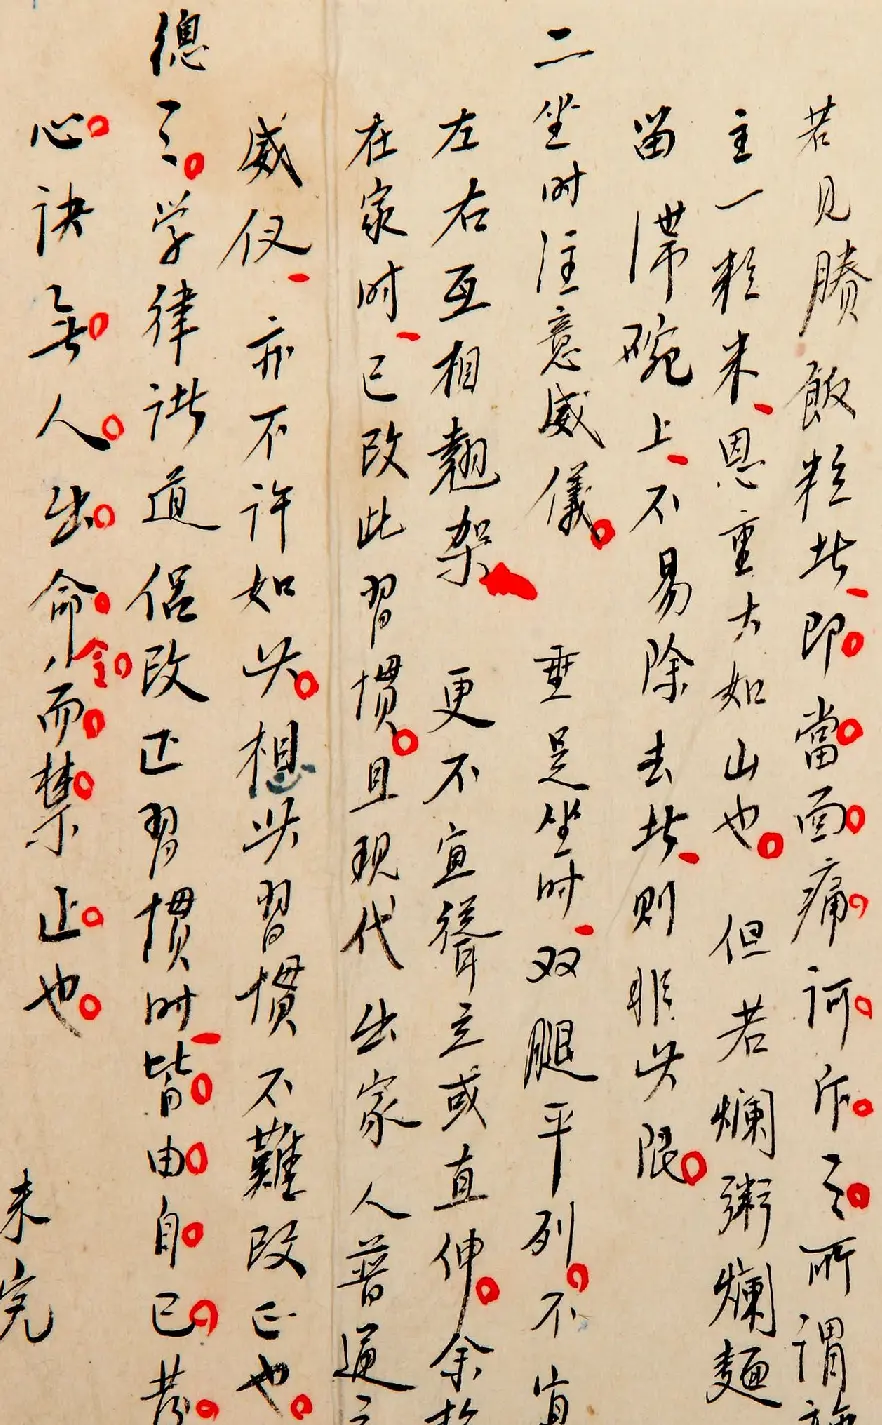 若見賸飯粒者、即當面痛訶斥之所謂施
主一粒米、恩重大如山也。但若爛粥爛麵
留滯碗上、不易除去者、則非此限。
二坐時注意威儀。垂足坐時、双腿平列。不宜
左右互相翹架 更不宜聳立或直伸。余於
在家时、已改此習惯。且现代出家人普通之
威仪、亦不许如此。想此習惯不難改正也。
總之。学律诸道侣改正習惯时、皆由自己
心决無人出命令而禁止也
未完